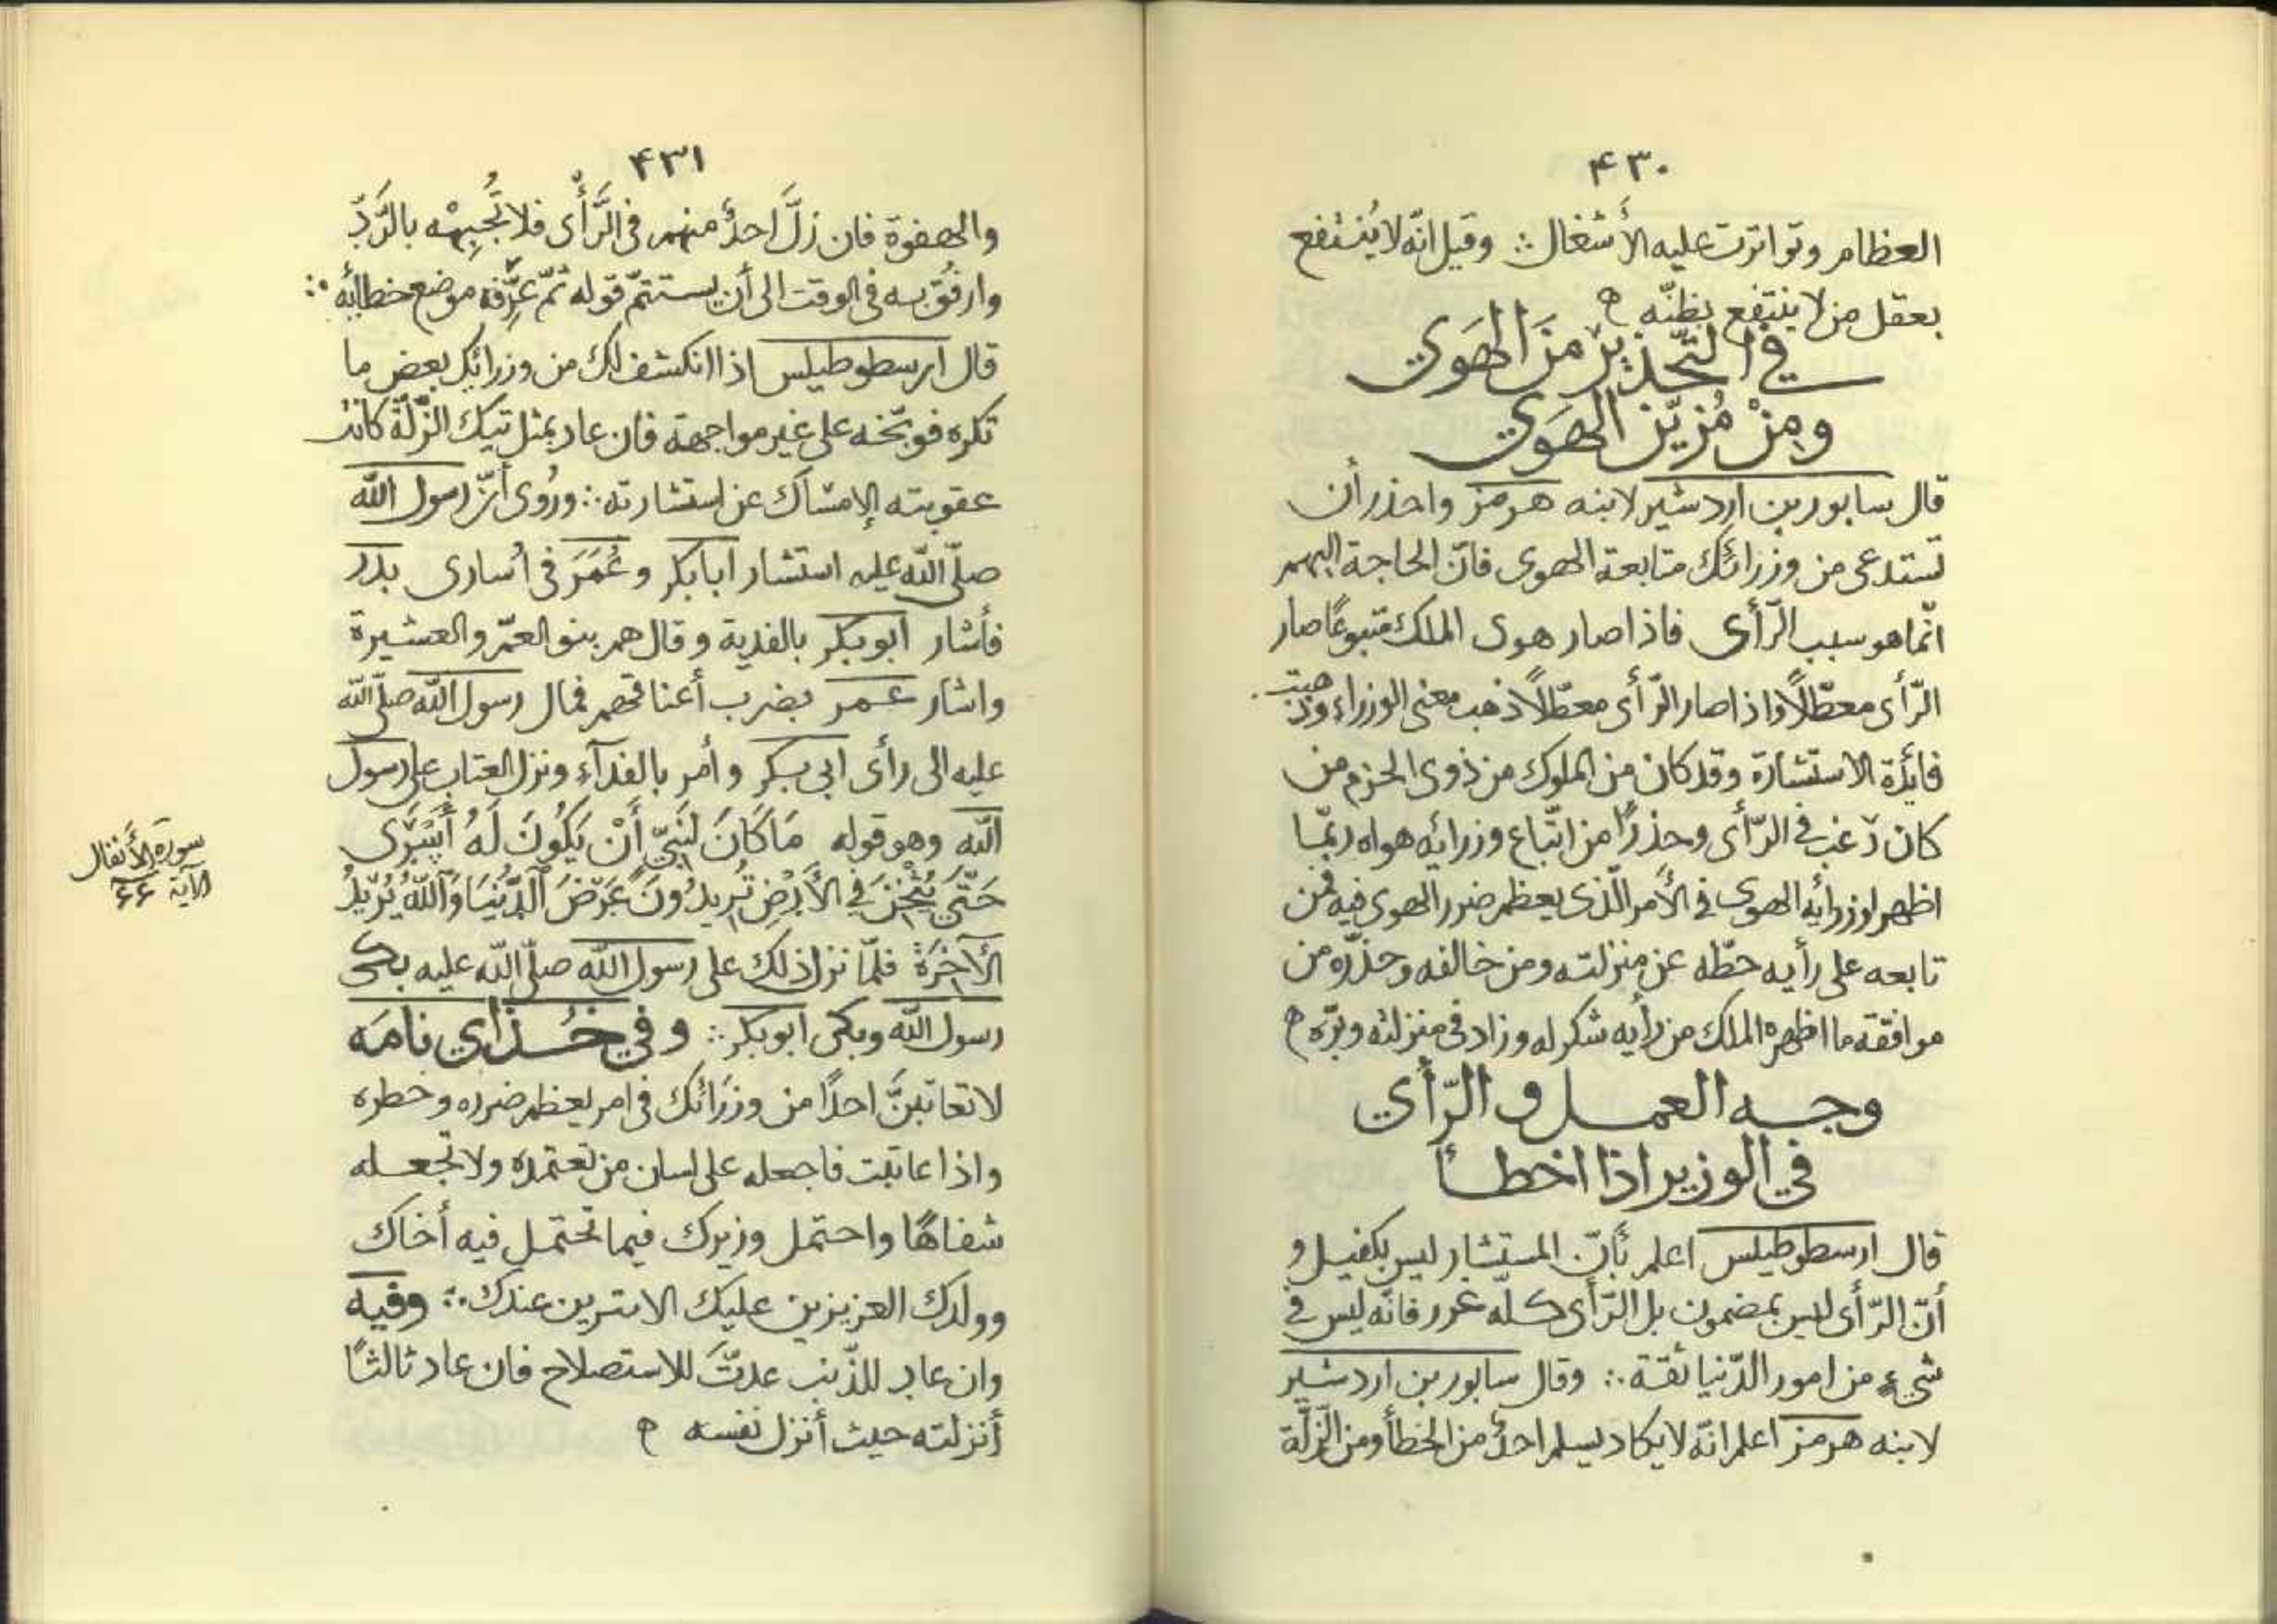 ۴۳۰
العظام وتواترت عليه الأشغال ∴ وقيل انّه لا يُنتفع
بعقل من لا ينتفع بظنّه ه
في التّحذير من الهَوي
ومِنْ مُزيّن الهَوي
قال سابور بن اردشير لابنه هرمز واحذر أن
تستدعى من وزرائك متابعة الهوى فانّ الحاجة اليهم
انّما هو سبب الرّأى فاذا صار هوى الملك متبوعًا صار
الرّأى معطّلًا واذا صار الرّأى معطّلًا ذهب معنى الوزراء وذهبت
فائدة الاستشارة وقد كان من الملوك من ذوى الحزم من
كان رغب فى الرّأى وحذرًا من اتّباع وزرائه هواه ربّما
اظهر لوزرائه الهوى فى الأمر الّذى يعظم ضرر الهوى فيه فمن
تابعه على رأيه حطّه عن منزلته ومن خالفه وحذّره من
موافقة ما اظهره الملك من رأيه شكر له وزاد فى منزلته وبرّه ه
وجه العمل و الرّأي
في الوزير اذا اخطأ
قال ارسطوطيلس اعلم بأنّ المستشار ليس بكفيل و
أنّ الرّأى ليس بمضمون بل الرّأى كلّه غرر فانّه ليس فى
شىء من امور الدّنيا ثقة ∴ وقال سابور بن اردشير
لابنه هرمز اعلم انّه لا يكاد يسلم احدٌ من الخطأ ومن الزّلّة
۴۳۱
والهفوة فان زلَّ احدٌ منهم فى الرَّأى فلا تُجبِهْه بالرَّدّ
وارفُق به فى الوقت الى أن يستتمّ قوله ثمّ عرِّفه موضع خطائه ∴
قال ارسطوطيلس اذا انكشف لك من وزرائك بعض ما
تكره فوبّخه على غير مواجهة فان عاد بمثل تيك الزّلّة كانت
عقوبته الإمساك عن استشارته ∴ ورُوى أنّ رسول الله
صلّى الله عليه استشار ابا بكر و عُمَرَ فى اُسارى بدر
فأشار ابو بكر بالفدية و قال هم بنو العمّ و العشيرة
واشار عمر بضرب أعناقهم فمال رسول الله صلّى الله
عليه الى رأى ابى بكر و أمر بالفدآء ونزل العتاب على رسول
الله وهو قوله مَا كَانَ لِنَبِيّ أَنْ يَكُونَ لَهُ أَسْرَى
حَتَّى يُثْخِنَ فِي الأَرْضِ تُرِيدُونَ عَرَضَ الدُّنْيَا وَاَللهُ يُرِيدُ
الآخِرَةَ فلمّا نزل ذلك على رسول الله صلّى الله عليه بكى
رسول الله وبكى ابو بكر ∴ و في خُذاي نامَه
لا تعاتبنَّ احدًا من وزرَائك فى امر يعظم ضرره وخطره
واذا عاتبت فاجعله على لسان من تعتمده ولا تجعله
شفاهًا واحتمل وزيرك فيما تحتمل فيه أخاك
وولدك العزيزين عليك الاثيرين عندك ∴ وفيه
وان عاد للذّنب عدتَّ للاستصلاح فان عاد ثالثًا
أنزلته حيث أنزل نفسه ه
سورة الأنفال
الآية ۶۶